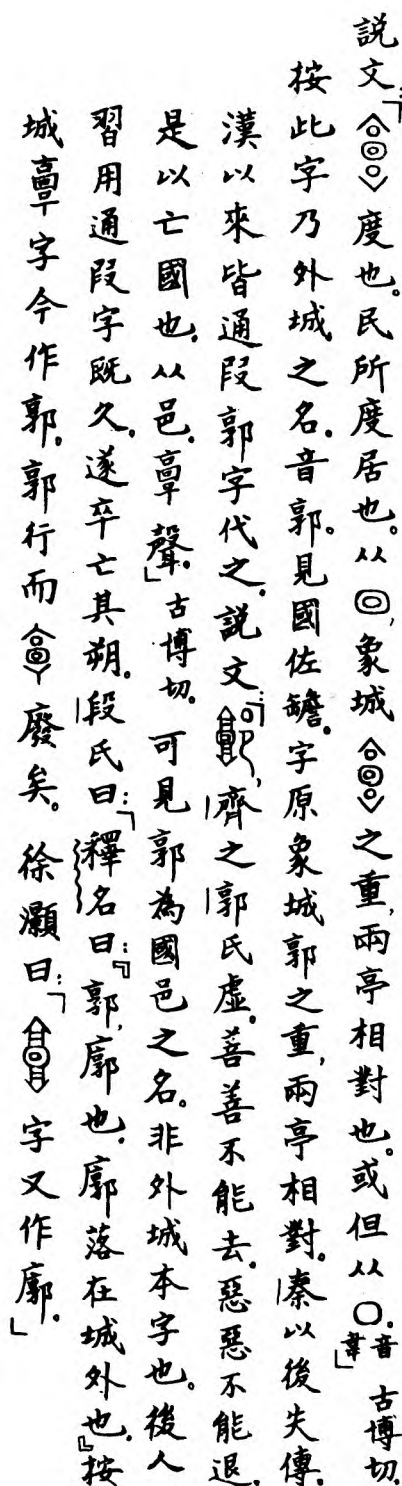 説文:「度也。民所度居也。从回,象城之重,兩亭相對也。或但从○。音韋」古博切.
按此字乃外城之名.音郭。見國佐𦉜.字原象城郭之重,兩亭相對。秦以後失傳.
漢以來皆通段郭字代之.説文:「齊之郭氏虛.善善不能去.惡惡不能退.
是以亡國也.从邑.𩫏聲.」古博切.可見郭為國邑之名。非外城本字也。後人
習用通段字既久.遂卒亡其朔.段氏曰:「釋名曰:『郭,廓也.廓落在城外也.』按
城𩫏字今作郭.郭行而廢矣。徐灝曰:「字又作廓.」